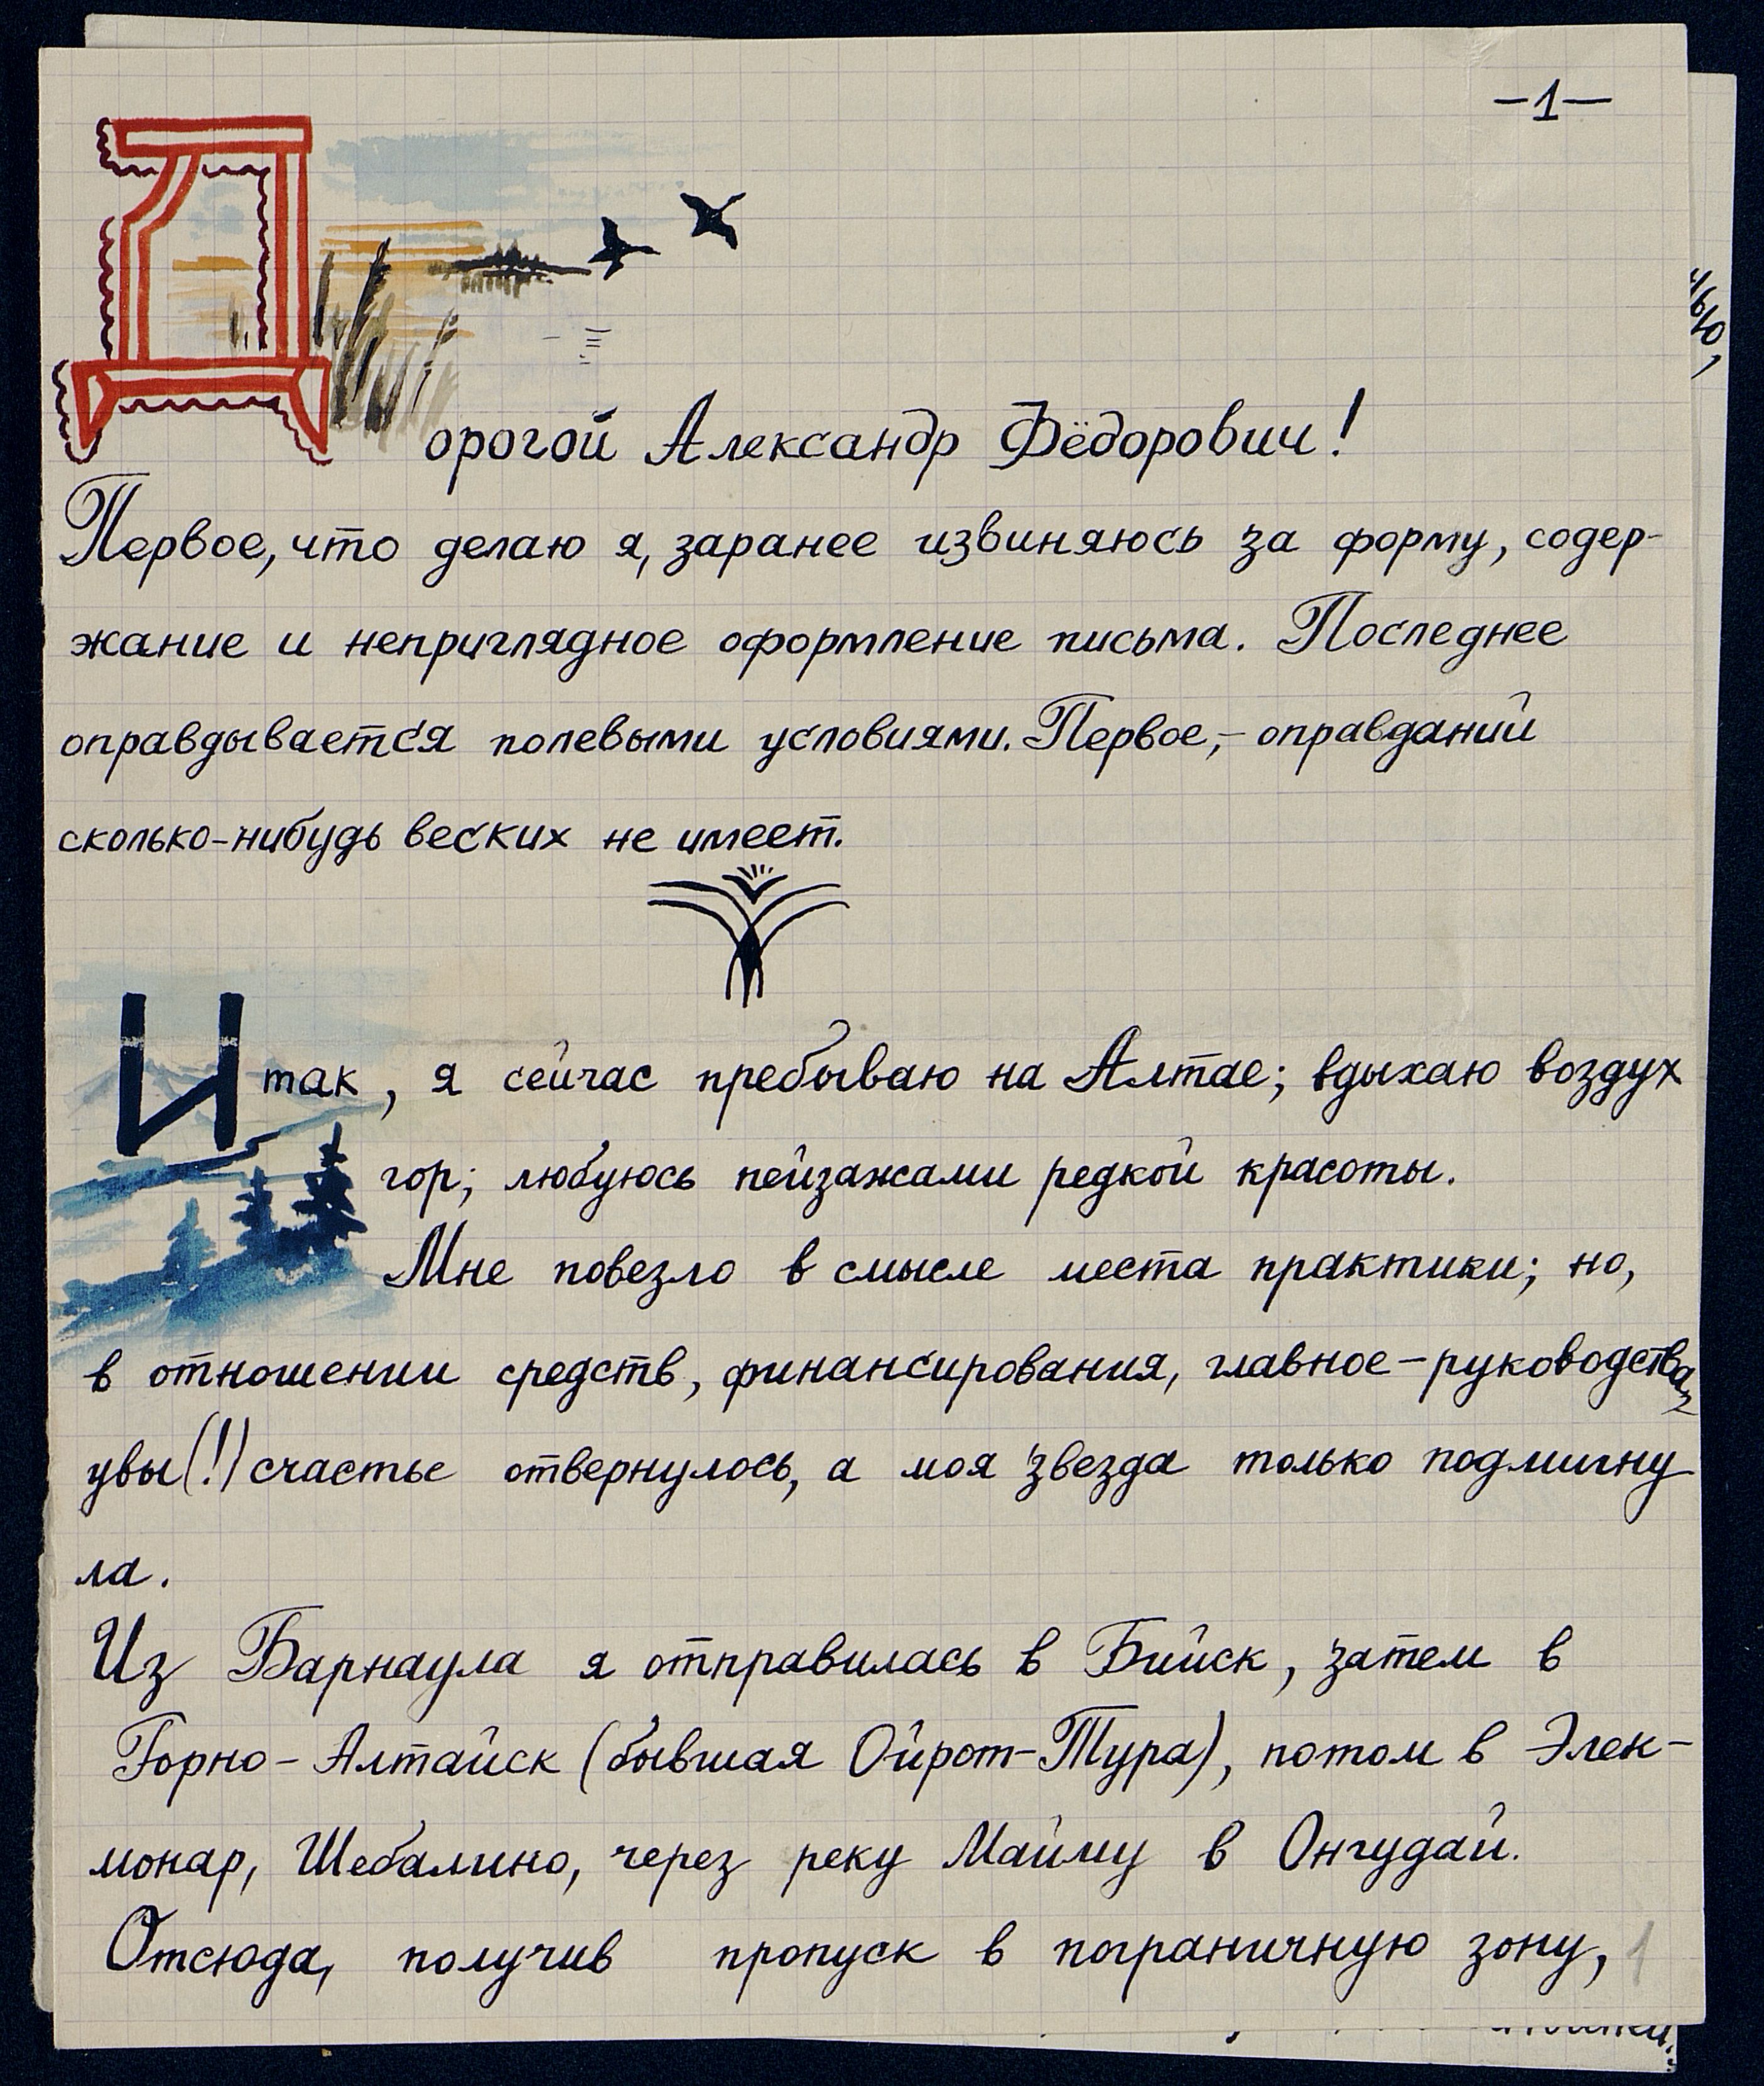 —1—
Дорогой Александр Фёдорович!
Первое, что делаю я, заранее извиняюсь за форму, содер-
жание и неприглядное оформление письма. Последнее
оправдывается полевыми условиями. Первое,- оправданий
сколько-нибудь веских не имеет.
Итак, я сейчас пребываю на Алтае; вдыхаю воздух
гор; любуюсь пейзажами редкой красоты.
Мне повезло в смысле места практики; но,
в отношении средств, финансирования, главное-руководства,
увы(!) счастье отвернулось, а моя звезда только подмигну
ла.
Из Барнаула я отправилась в Бийск, затем в
Горно-Алтайск (бывшая Ойрот-Тура), потом в Элек-
монар, Шебалино, через реку Майму в Онгудай.
Отсюда, получив пропуск в пограничную зону,
1